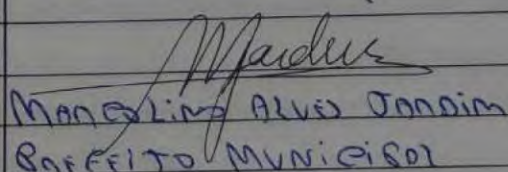 Marcolino Alves Jardim
Prefeito Municipal